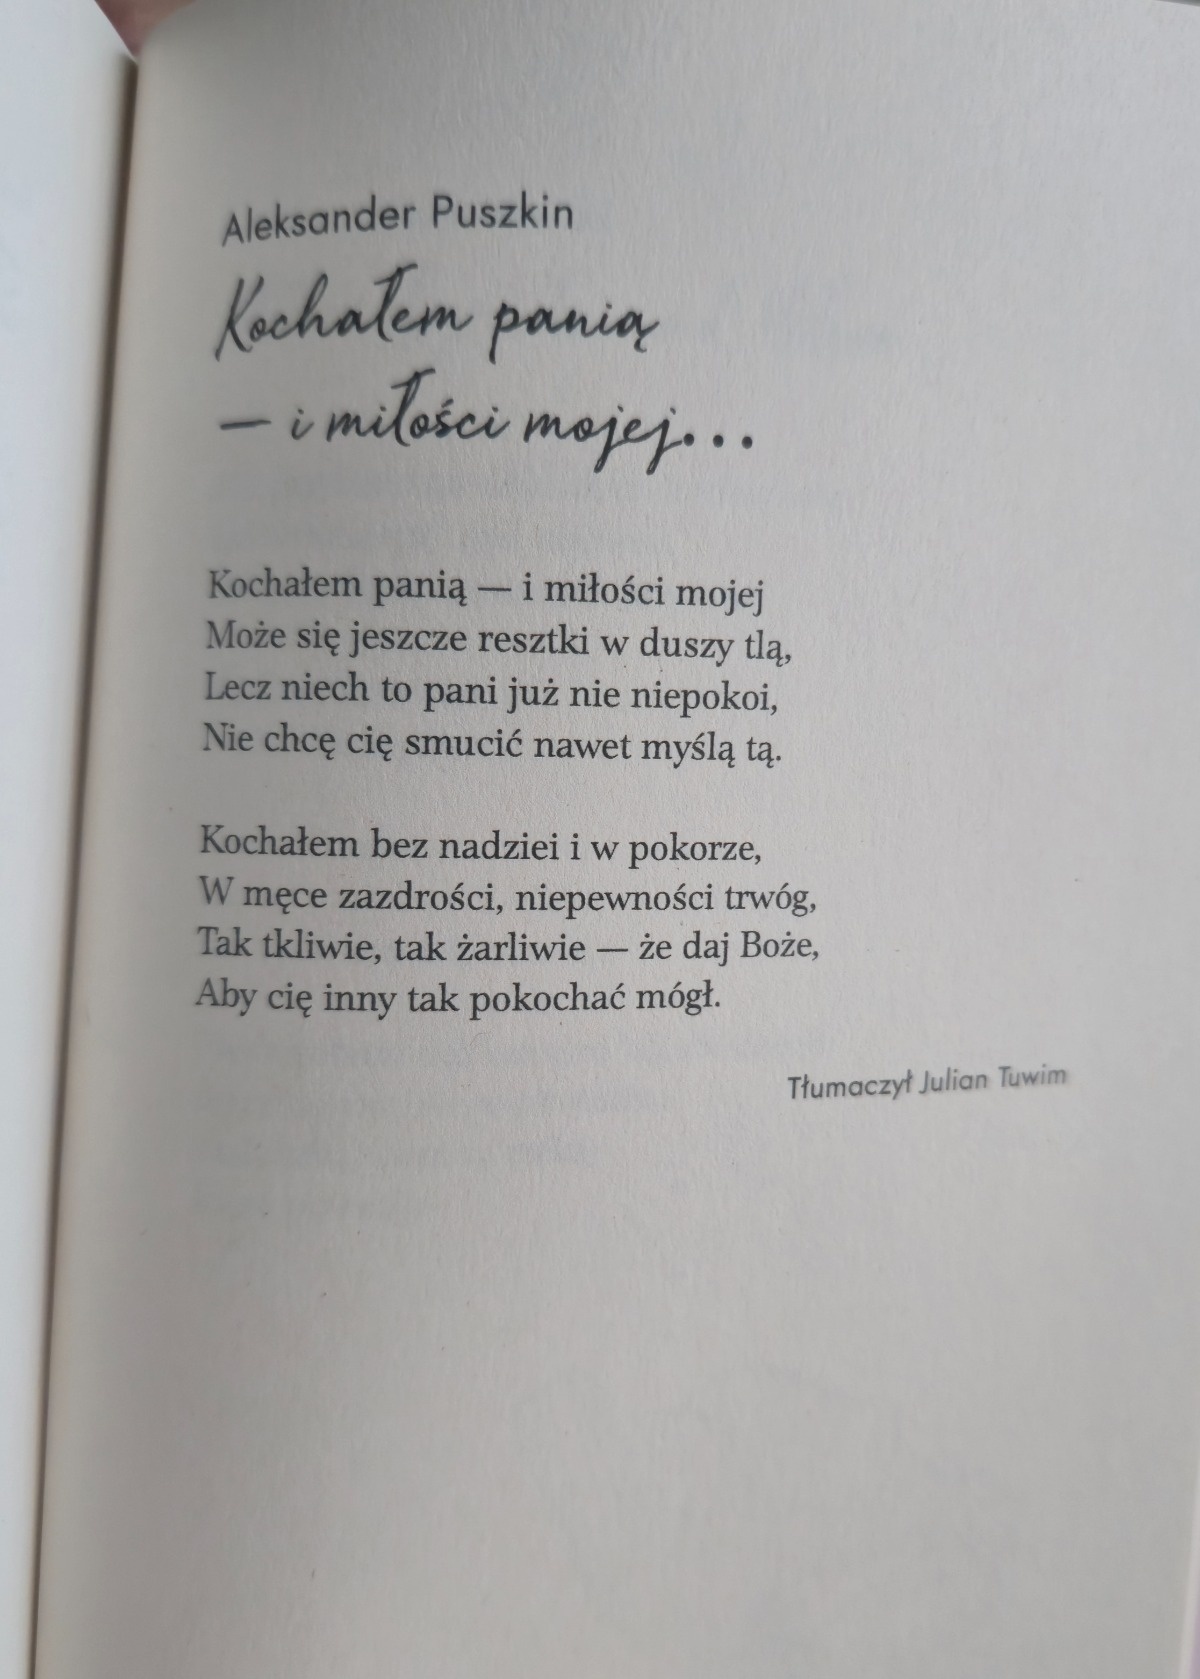 Aleksander Puszkin
Kochałem panią
— i miłości mojej...
Kochałem panią — i miłości mojej
Może się jeszcze resztki w duszy tlą,
Lecz niech to pani już nie niepokoi,
Nie chcę cię smucić nawet myślą tą.
Kochałem bez nadziei i w pokorze,
W męce zazdrości, niepewności trwóg,
Tak tkliwie, tak żarliwie — że daj Boże,
Aby cię inny tak pokochać mógł.
Tłumaczył Julian Tuwim